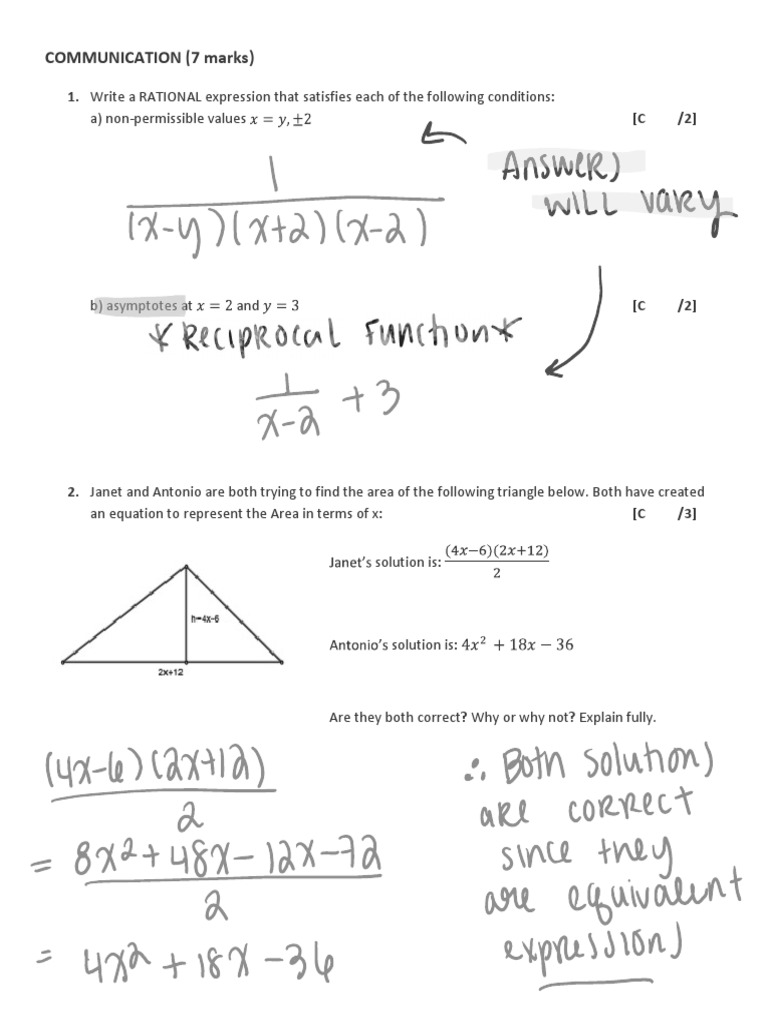 COMMUNICATION (7 marks)
1. Write a RATIONAL expression that satisfies each of the following conditions:
a) non-permissible values x = y, ±2 [C /2]
Answers
will vary
1
(x-y)(x+2)(x-2)
b) asymptotes at x = 2 and y = 3 [C /2]
* Reciprocal Function *
1
x-2 + 3
2. Janet and Antonio are both trying to find the area of the following triangle below. Both have created
an equation to represent the Area in terms of x: [C /3]
Janet's solution is: (4x−6)(2x+12)
2
h=4x-6
2x+12
Antonio's solution is: 4x² + 18x − 36
Are they both correct? Why or why not? Explain fully.
(4x-6)(2x+12)
2
= 8x² + 48x - 12x - 72
2
= 4x² + 18x - 36
∴ Both solutions
are correct
since they
are equivalent
expressions